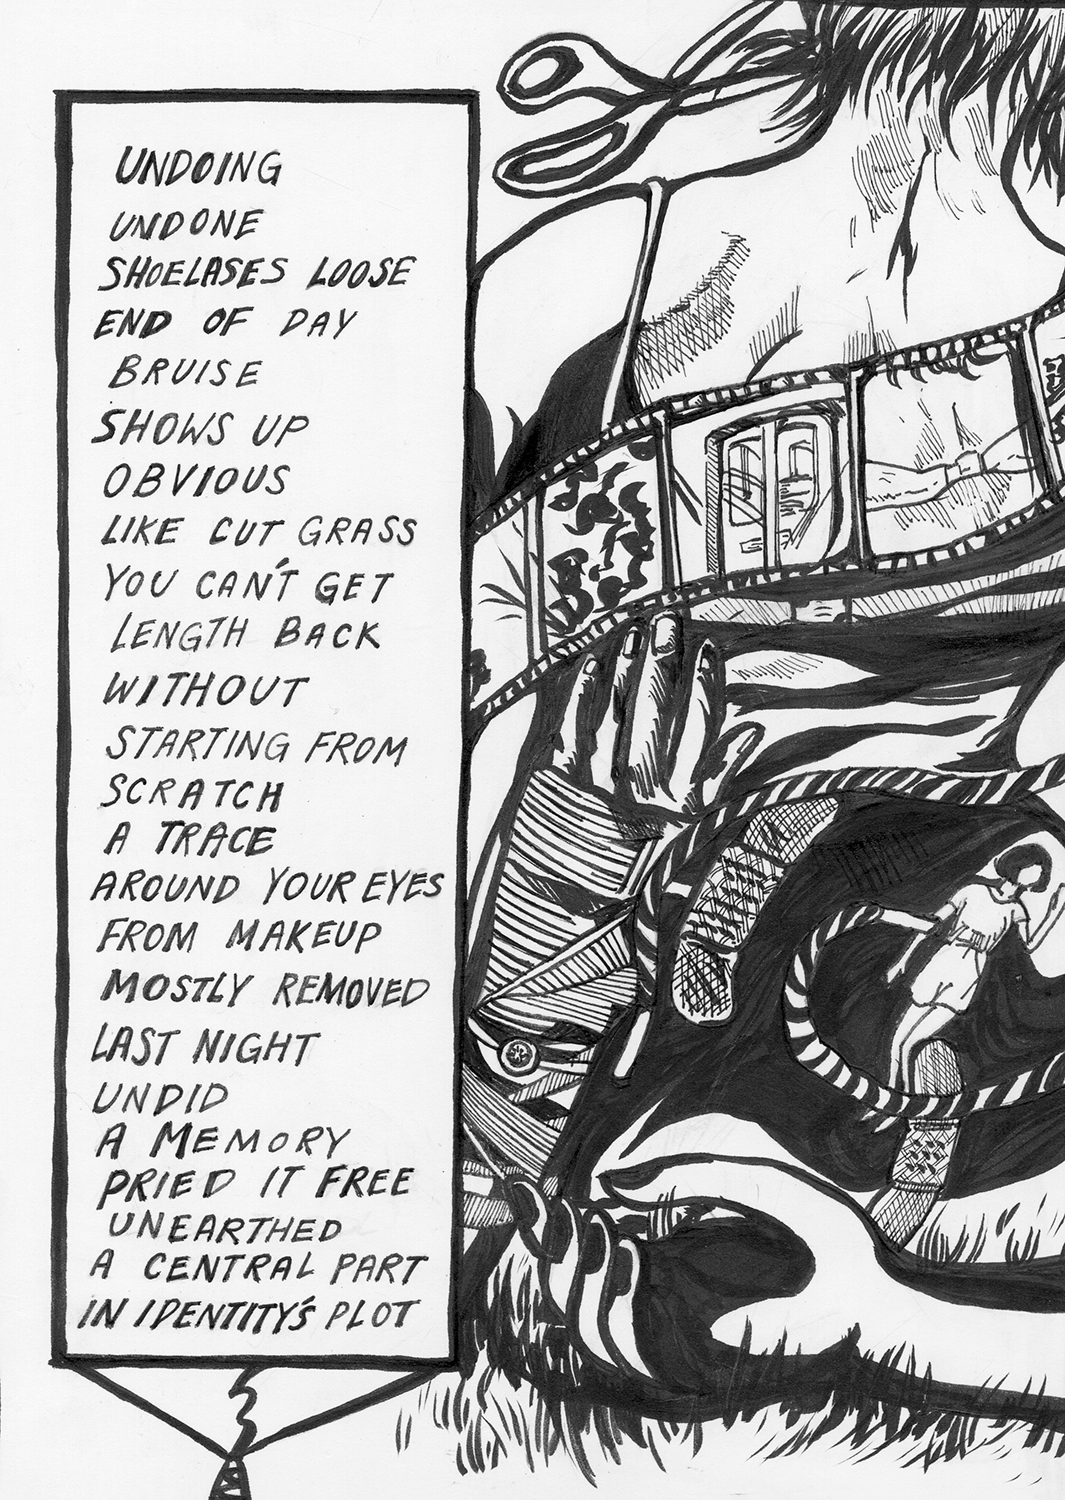 UNDOING
UNDONE
SHOELASES LOOSE
END OF DAY
BRUISE
SHOWS UP
OBVIOUS
LIKE CUT GRASS
YOU CAN'T GET
LENGTH BACK
WITHOUT
STARTING FROM
SCRATCH
A TRACE
AROUND YOUR EYES
FROM MAKEUP
MOSTLY REMOVED
LAST NIGHT
UNDID
A MEMORY
PRIED IT FREE
UNEARTHED
A CENTRAL PART
IN IDENTITY'S PLOT